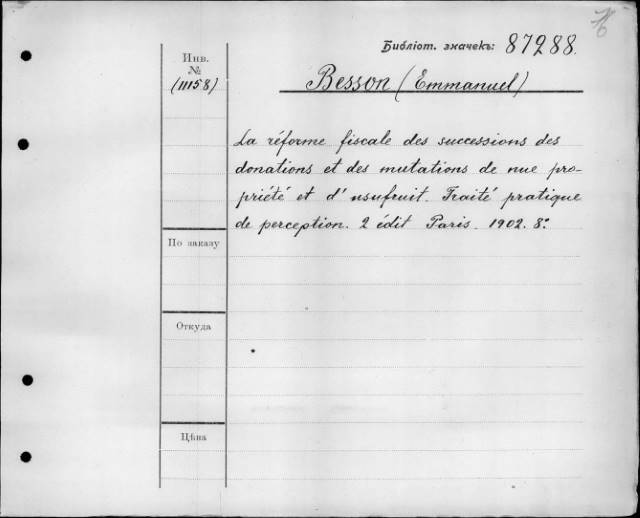 Библіот. значекъ: 87288.
Инв.
№
(11158)
Besson (Emmanuel)
La réforme fiscale des successions des
donations et des mutations de nue pro-
priété et d'usufruit. Traité pratique
de perception. 2 édit Paris. 1902. 8º
По заказу
Откуда
Цѣна